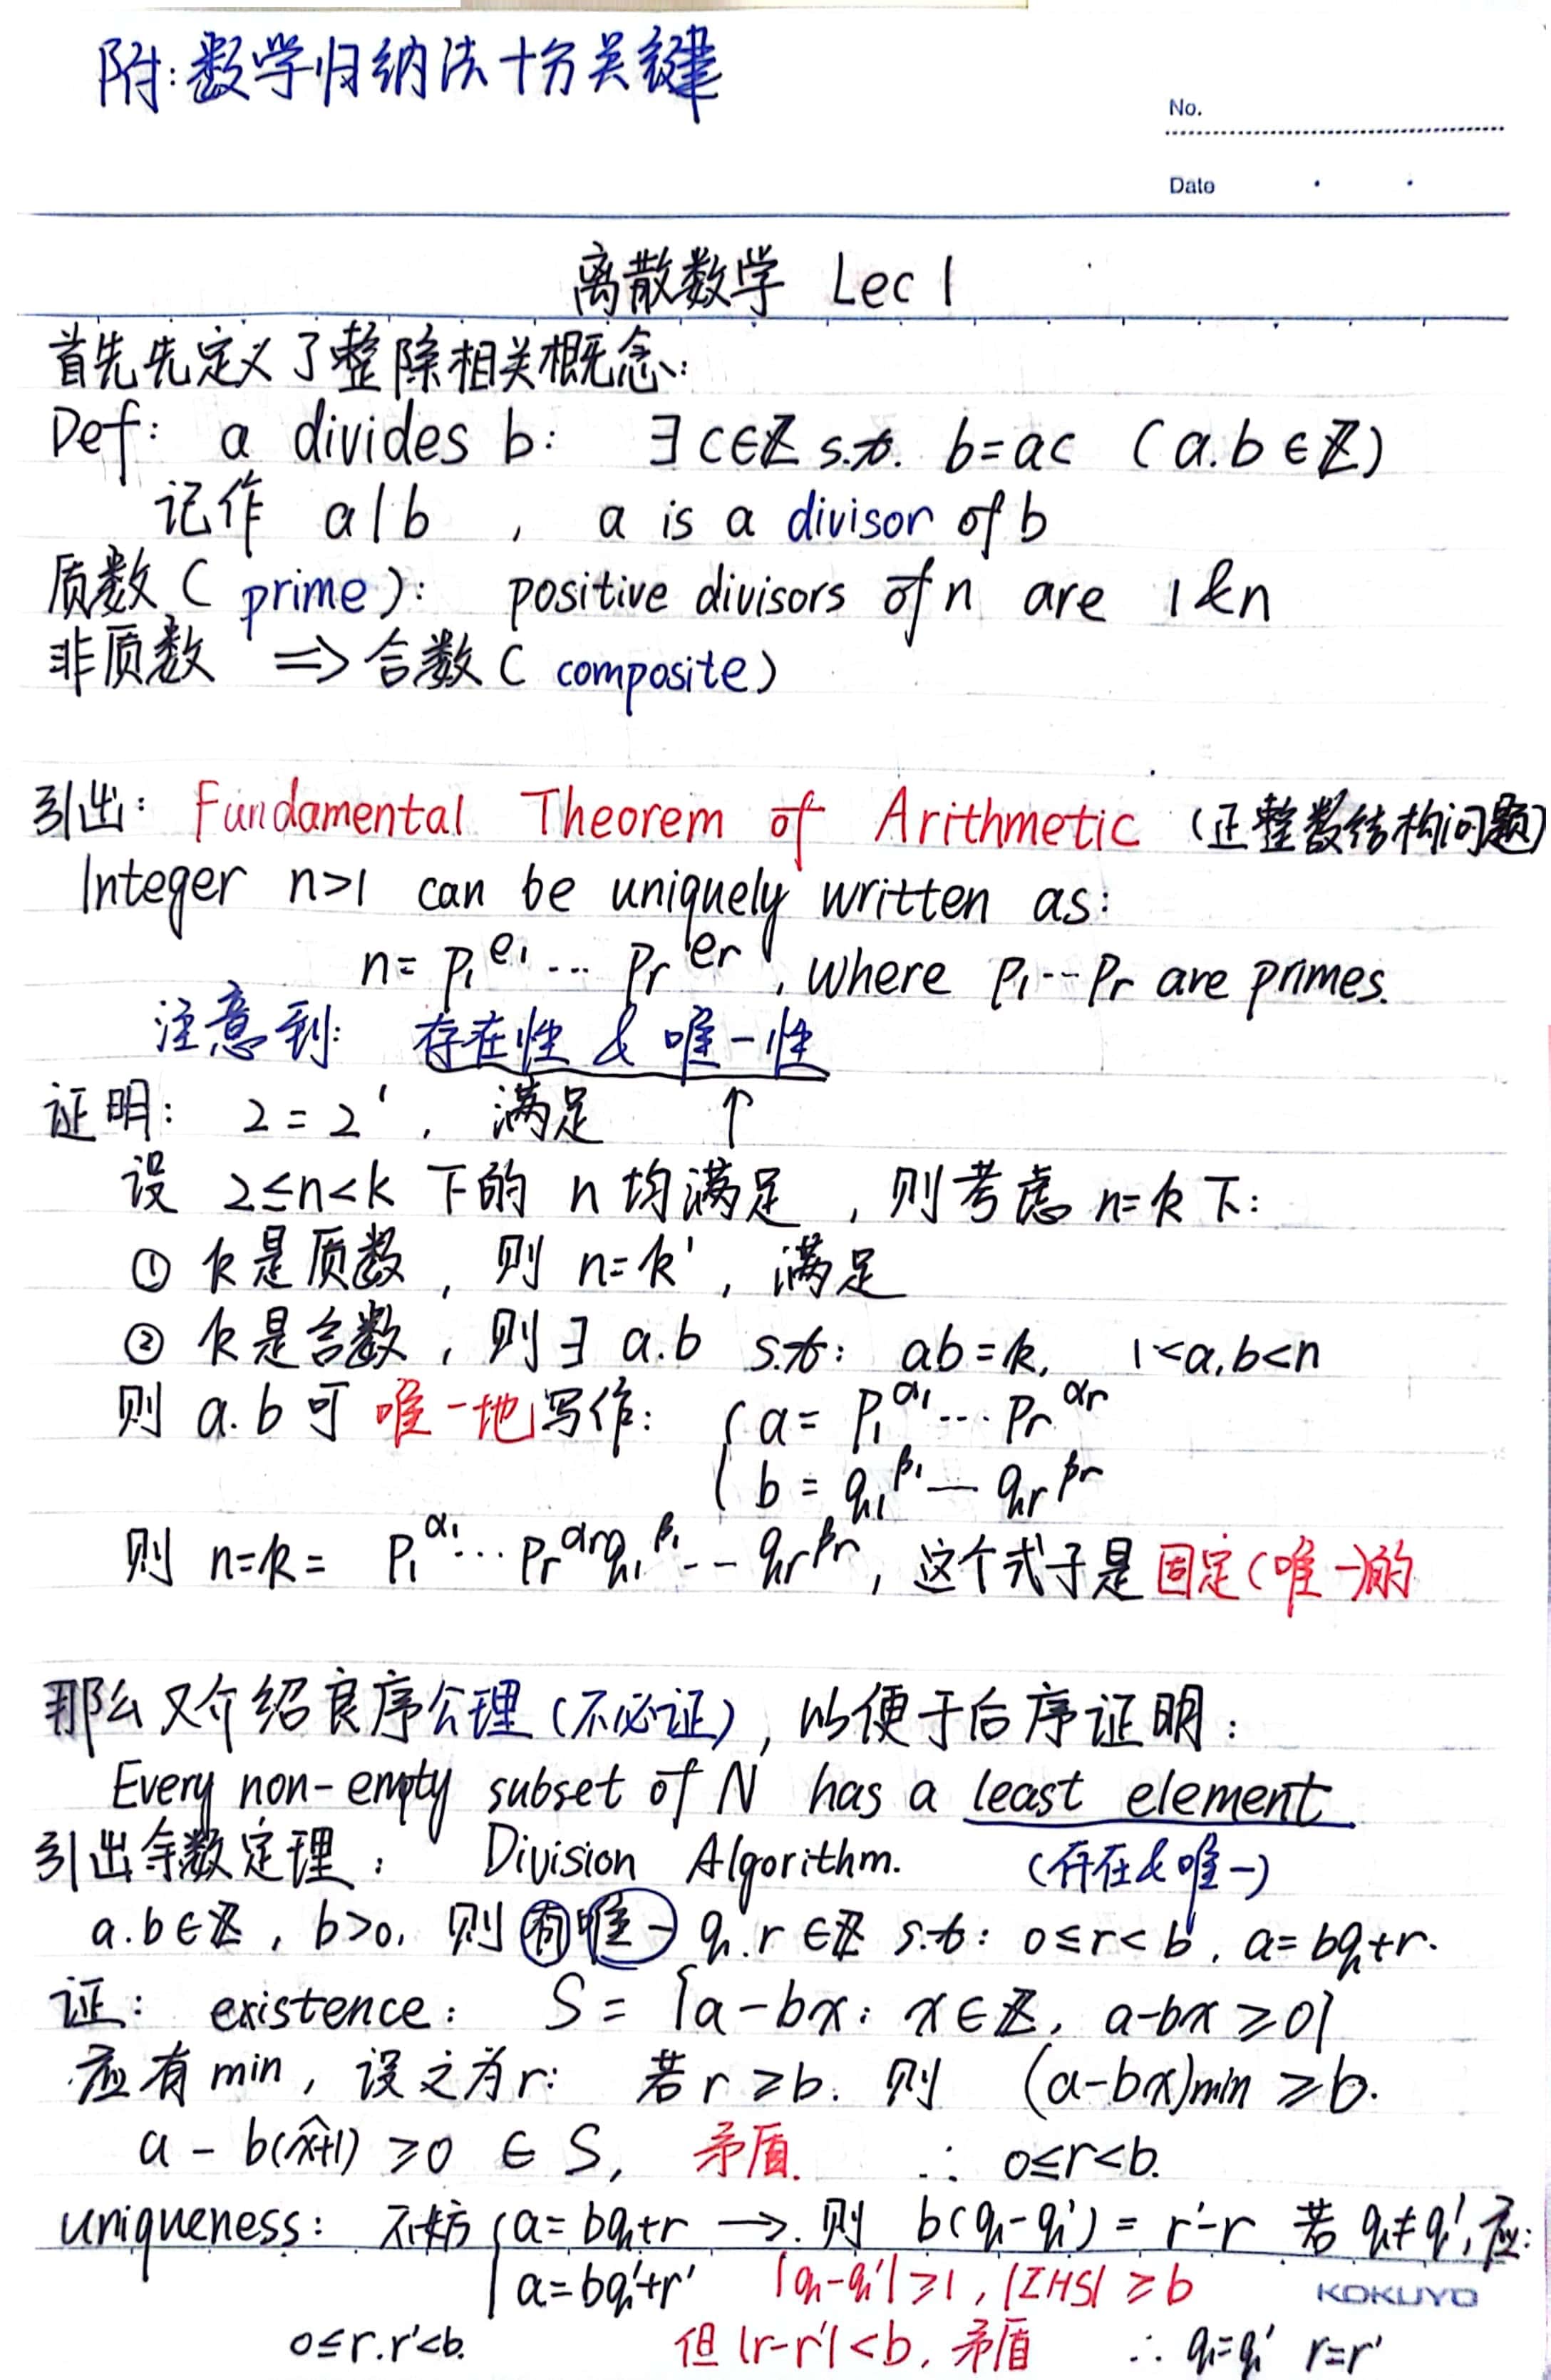 附:数学归纳法十分关键
No.
Date
离散数学 Lec 1
首先先定义了整除相关概念:
Def: a divides b: ∃c∈ℤ s.t. b=ac (a.b∈ℤ)
记作 a|b , a is a divisor of b
质数( prime): positive divisors of n are 1&n
非质数 ⇒合数( composite)
引出: Fundamental Theorem of Arithmetic (正整数结构问题)
Integer n>1 can be uniquely written as:
n= p₁^e₁ ... pᵣ^eᵣ, where p₁--pᵣ are primes.
注意到: 存在性 & 唯一性
证明: 2=2¹, 满足 ↑
设 2≤n<k 下的 n均满足, 则考虑 n=k下:
① k是质数, 则 n=k¹, 满足
② k是合数, 则∃ a.b s.t: ab=k, 1<a,b<n
则 a.b可唯一地写作: { a= p₁^α₁ ... pᵣ^αᵣ
b = q₁^β₁ — qᵣ^βᵣ
则 n=k= p₁^α₁...pᵣ^αᵣq₁^β₁--qᵣ^βᵣ, 这个式子是固定(唯一)的
那么又介绍良序公理(不必证), 以便于后序证明:
Every non-empty subset of N has a least element
引出余数定理: Division Algorithm. (存在&唯一)
a.b∈ℤ, b>0, 则有唯一 q.r∈ℤ s.t: 0≤r<b, a=bq+r.
证: existence: S= {a-bx: x∈ℤ, a-bx≥0}
应有min, 设之为r: 若r≥b. 则 (a-bx)min ≥b.
a - b(x̂+1) ≥0 ∈ S, 矛盾. ∴ 0≤r<b.
uniqueness: 不妨 { a=bq+r →. 则 b(q-q') = r'-r 若 q≠q', 应:
a=bq'+r' |q-q'|≥1, |LHS| ≥b
KOKUYO
0≤r.r'<b. 但 |r-r'|<b, 矛盾 ∴ q=q' r=r'